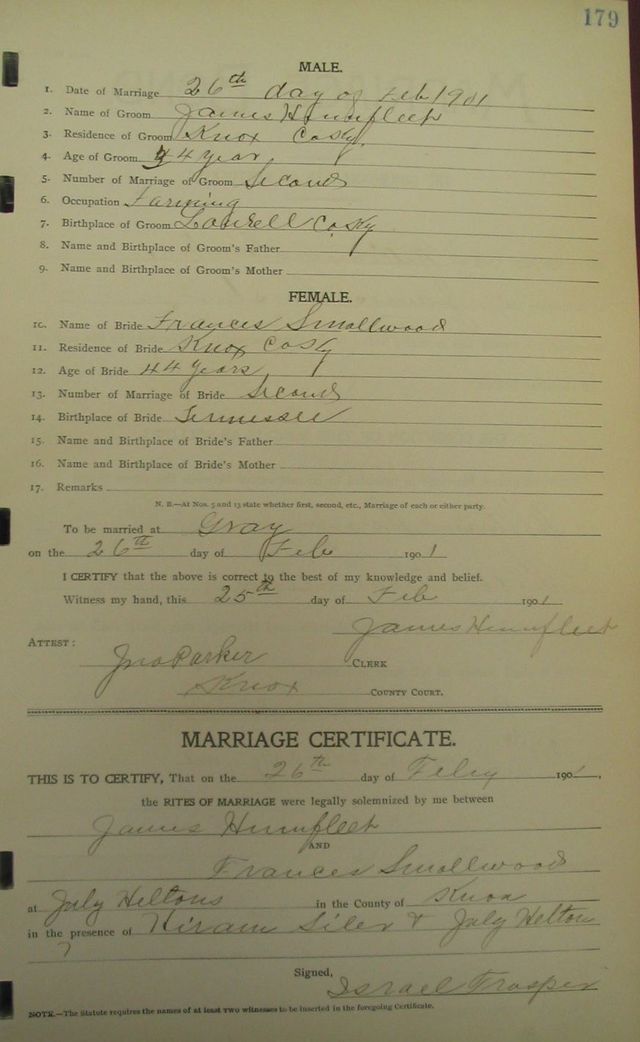 179
MALE.
1. Date of Marriage 26th day of Feb 1901
2. Name of Groom James Humfleet
3. Residence of Groom Knox Co Ky.
4. Age of Groom 44 year
5. Number of Marriage of Groom Second
6. Occupation Farming
7. Birthplace of Groom Lourell Co Ky
8. Name and Birthplace of Groom's Father
9. Name and Birthplace of Groom's Mother
FEMALE.
10. Name of Bride Frances Smallwood
11. Residence of Bride Knox Co Ky
12. Age of Bride 44 years
13. Number of Marriage of Bride Second
14. Birthplace of Bride Tennessee
15. Name and Birthplace of Bride's Father
16. Name and Birthplace of Bride's Mother
17. Remarks
N. B.—At Nos. 5 and 13 state whether first, second, etc., Marriage of each or either party.
To be married at Gray
on the 26th day of Feb 1901
I CERTIFY that the above is correct to the best of my knowledge and belief.
Witness my hand, this 25th day of Feb 1901
James Humfleet
ATTEST:
Jno Parker CLERK
Knox COUNTY COURT.
MARRIAGE CERTIFICATE.
THIS IS TO CERTIFY, That on the 26th day of Feby 1901.
the RITES OF MARRIAGE were legally solemnized by me between
James Humfleet
AND
Frances Smallwood
at July Heltons in the County of Knox
in the presence of Hiram Siler & July Helton
Signed,
Israel Trosper
NOTE.—The Statute requires the names of at least two witnesses to be inserted in the foregoing Certificate.